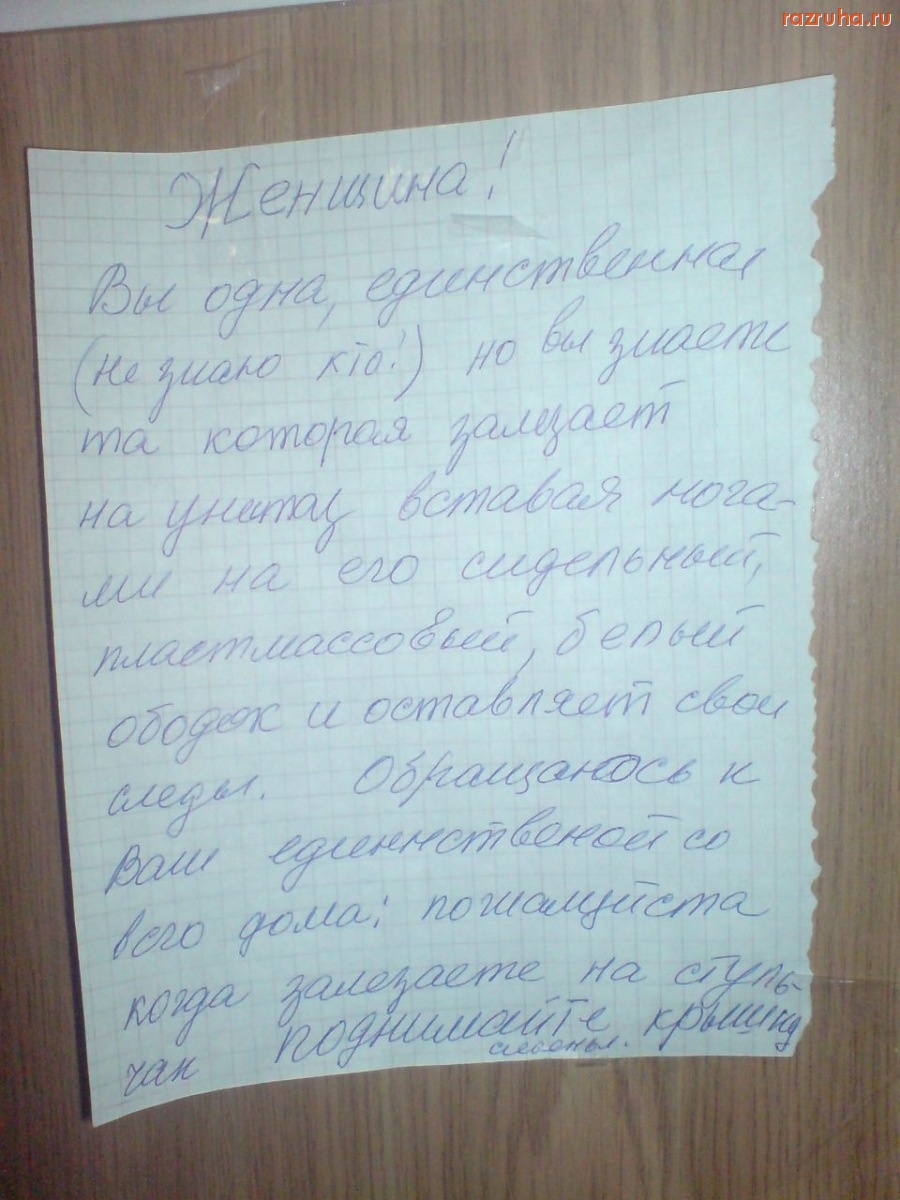 razruha.ru
Женщина!
Вы одна, единственная
(не знаю кто!) но вы знаете
та которая залезает
на унитаз вставая нога-
ми на его сидельный,
пластмассовый, белый
ободок и оставляет свои
следы. Обращаюсь к
Вам единнственой со
всего дома: пожалуйста
когда залезаете на стуль-
чак поднимайте крышку